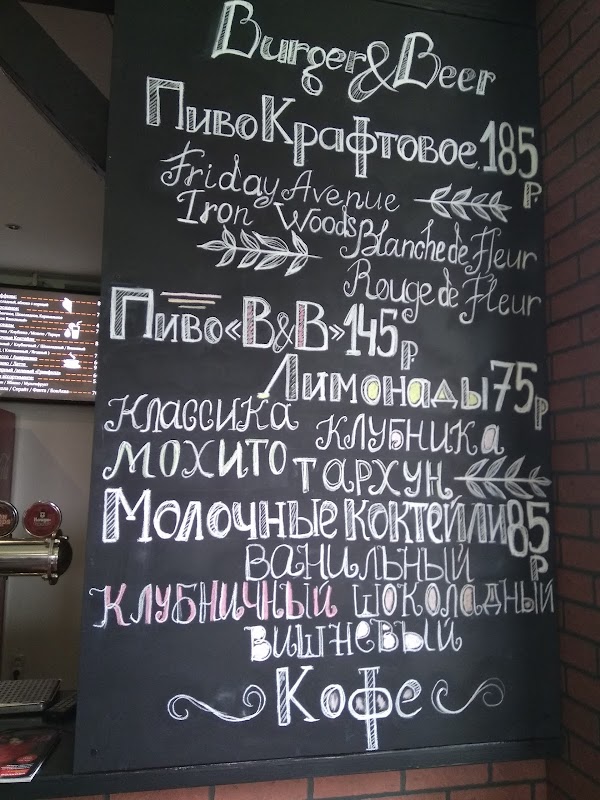 Burger&Beer
Пиво Крафтовое. 185 р.
Friday Avenue
Iron Woods
Blanche de Fleur
Rouge de Fleur
Пиво «B&B» 145 р
Лимонады 75 р
Классика
клубника
мохито
тархун
Молочные коктейли 85 р
ванильный
клубничный шоколадный
вишневый
Кофе